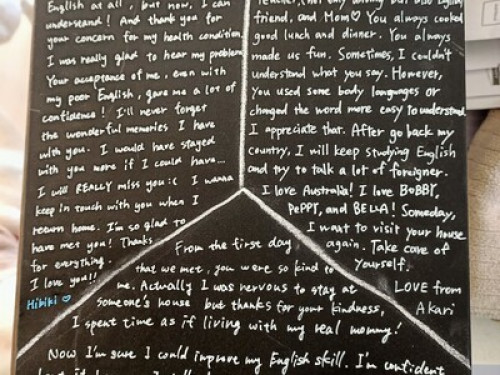 English at all, but now, I can
understand! And thank you for
your concern for my health condition.
I was really glad to hear my problem
Your acceptance of me, even with
my poor English, gave me a lot of
confidence! I'll never forget
the wonderful memories I have
with you. I would have stayed
with you more if I could have...
I will REALLY miss you :( I wanna
keep in touch with you when I
return home. I'm so glad to
have met you! Thanks
for everything.
I love you!!
Hibiki ♡
friend, and Mom♡ You always cooked
good lunch and dinner. You always
made us fun. Sometimes, I couldn't
understand what you say. However,
you used some body languages or
changed the word more easy to understand.
I appreciate that. After go back my
country, I will keep studying English
and try to talk a lot of foreigner.
I love Australia! I love BOBBY,
PEPPI, and BELLA! Someday,
I want to visit your house
again. Take care of
yourself.
LOVE from
Akari
From the first day
that we met, you were so kind to
me. Actually I was nervous to stay at
someone's house but thanks for your kindness,
I spent time as if living with my real mommy!
Now I'm sure I could improve my English skill. I'm confident